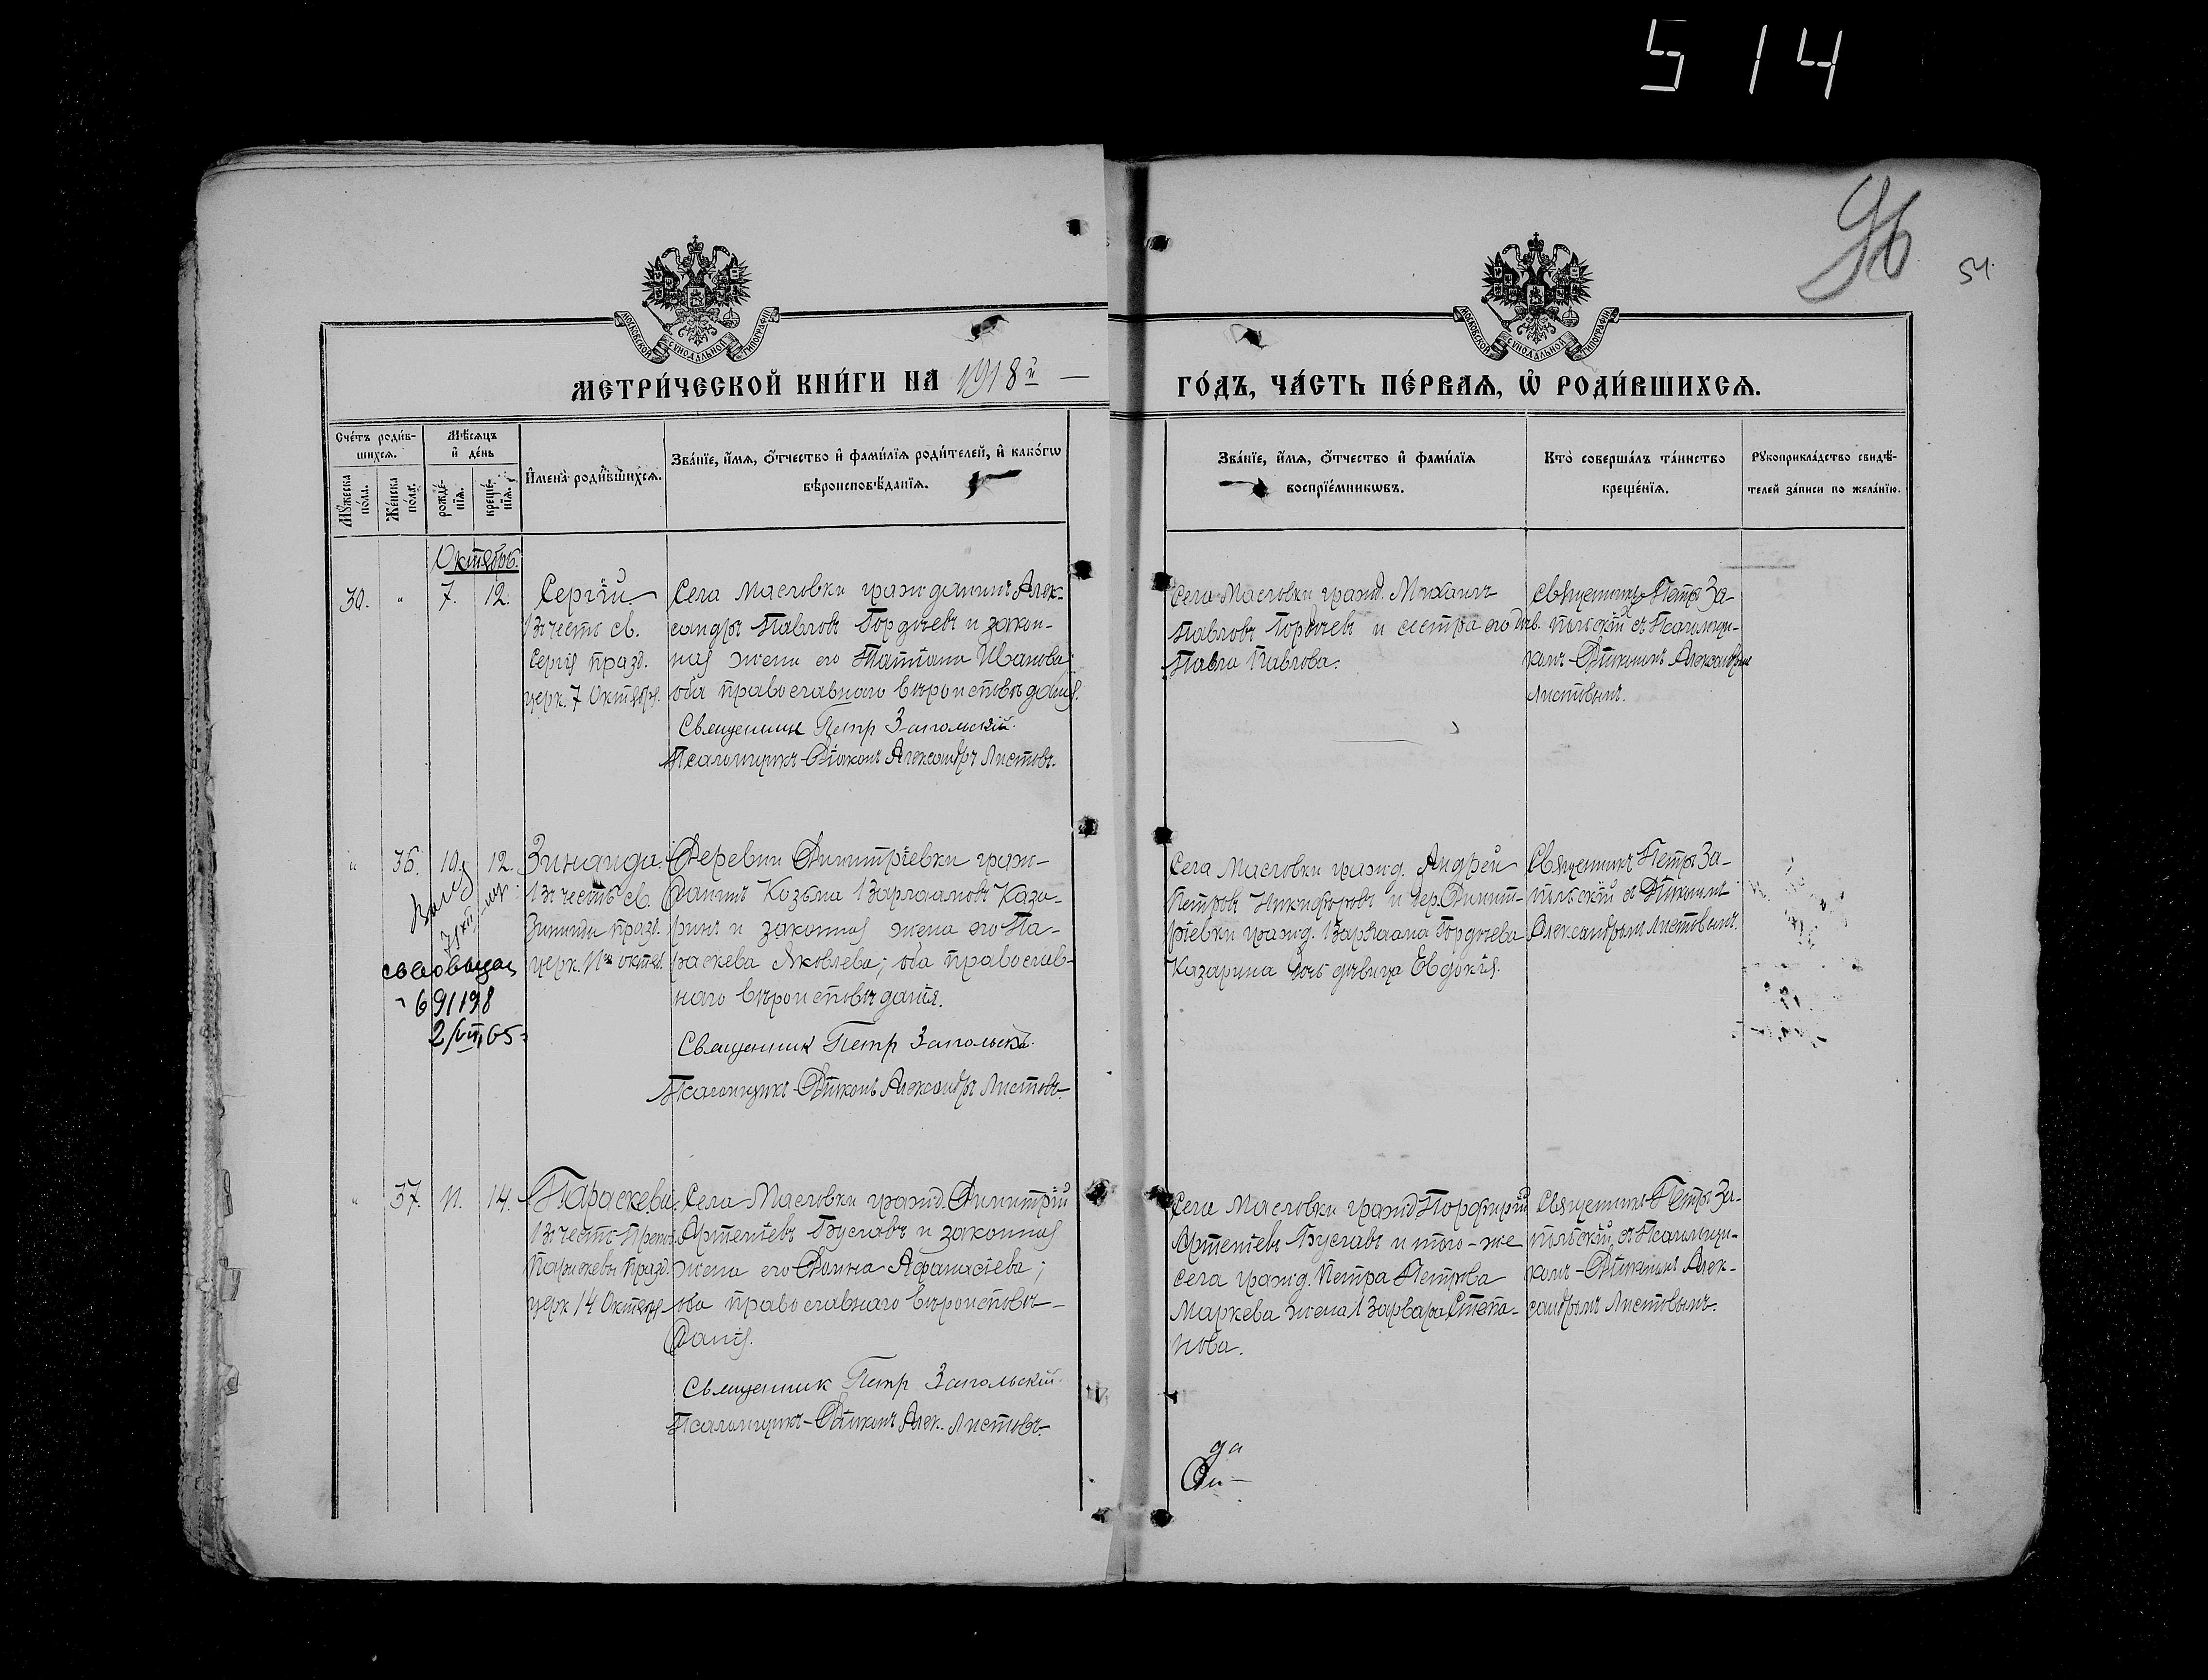 5 14
96
54.
МОСКОВСКОЙ СѴНОДАЛЬНОЙ ТИПОГРАФІИ
МОСКОВСКОЙ СѴНОДАЛЬНОЙ ТИПОГРАФІИ
МЕТРИ́ЧЕСКОЙ КНИ́ГИ НА 1918й —
ГО́ДЪ, ЧА́СТЬ ПЕ́РВАЯ, Ѡ҆ РОДИ́ВШИХСЯ.
Сче́тъ роди́в-
шихся.
Мѣ́сяцъ
и҆ де́нь
Мꙋ́жеска
по́ла.
Же́нска
по́ла.
рожде́-
нїя.
креще́-
нїя.
И҆мена̀ роди́вшихся.
Зва́нїе, и҆́мя, ѻ҆́тчество и҆ фами́лїя роди́телей, и҆ како́гѡ
вѣроисповѣ́данїя.
Зва́нїе, и҆́мя, ѻ҆́тчество и҆ фами́лїя
воспрїе́мникѡвъ.
Кто̀ соверша́лъ та́инство
креще́нїя.
Рꙋкоприкла́дство свидѣ́-
телей за́писи по жела́нїю.
Октябрь.
30. " 7. 12.
Сергій
Въ честь св.
Сергія празд.
церк. 7 Октября.
Села Масловки гражданинъ Алек-
сандръ Павловъ Гордѣевъ и закон-
ная жена его Татіана Иванова;
оба православнаго вѣроисповѣданія.
Священник Петр Запольскій.
Псаломщикъ-Діаконъ Александръ Листовъ.
Села Масловки гражд. Михаилъ
Павловъ Гордѣевъ и сестра его дѣв.
Павла Павлова.
Священникъ Петръ За-
польскій съ Псаломщи-
комъ-Діакономъ Александромъ
Листовымъ.
" 36. 10. 12.
Зинаида.
Въ честь св.
Зинаиды празд.
церк. 11го октяб.
Деревни Димитріевки граж-
данинъ Козьма Варлаамовъ Каза-
ринъ и законная жена его Па-
раскева Яковлева; оба православ-
наго вѣроисповѣданія.
Священник Петр Запольскій.
Псаломщикъ-Діаконъ Александръ Листовъ.
691198
2/VII 65
Села Масловки гражд. Андрей
Петровъ Никифоровъ и дер. Димит-
ріевки гражд. Варлаама Гордѣева
Казарина дочь дѣвица Евдокія.
Священникъ Петръ За-
польскій съ Діакономъ
Александромъ Листовымъ.
" 37. 11. 14.
Параскева.
Въ честь Преп.
Параскевы празд.
церк. 14 Октября
Села Масловки гражд. Димитрій
Артеміевъ Буславъ и законная
жена его Домна Афанасіева;
оба православнаго вѣроисповѣ-
данія.
Священник Петр Запольскій.
Псаломщикъ-Діаконъ Алек. Листовъ.
Села Масловки гражд. Порфирій
Артеміевъ Буславъ и того-же
села гражд. Петра Петрова
Маркева жена Варвара Степа-
нова.
Священникъ Петръ За-
польскій съ Псаломщи-
комъ-Діакономъ Алек-
сандромъ Листовымъ.
да